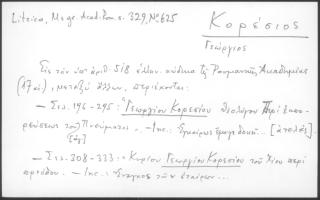 Litzica, Ms. gr. Acad. Rom. σ. 329, Nº 625
Κορέσιος
Γεώργιος
Εἰς τὸν ὑπ' ἀριθ. 518 ἑλλην. κώδικα τῆς Ρουμανικῆς Ἀκαδημίας
(17 αἰ.), μεταξὺ ἄλλων, περιέχονται:
— Σελ. 195-295: Γεωργίου Κορεσίου Θεολόγου Περὶ ἐκπο-
ρεύσεως τοῦ Πνεύματος. — Inc.: [ἀτελὲς]
— Σελ. 308-333: Κυρίου Γεωργίου Κορεσίου τοῦ Χίου περὶ
προόδου. — Inc.: Ἔναγχος τῶν ἑταίρων...